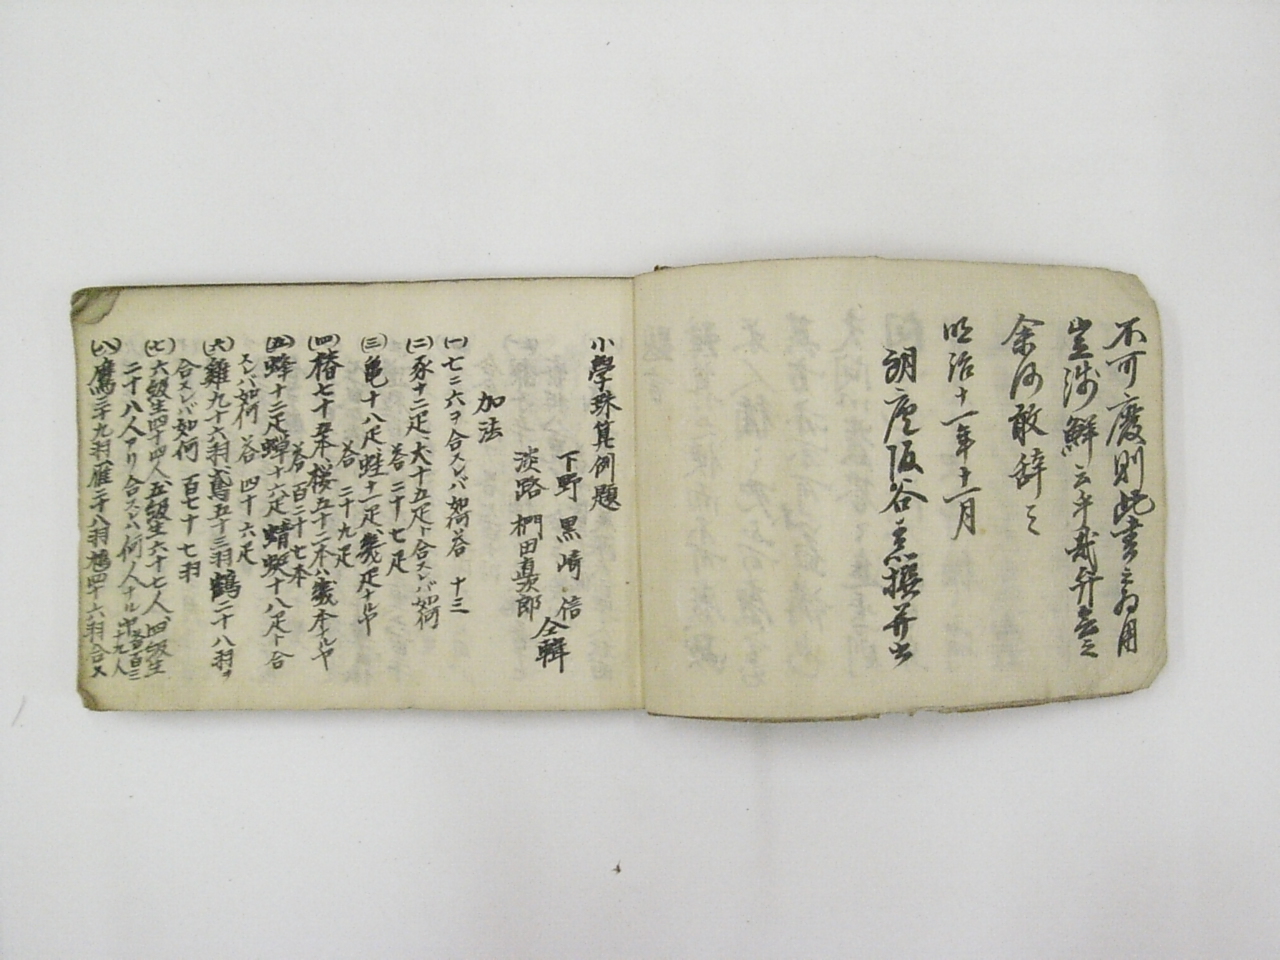 不可廢則此書之為用
豈浅鮮云乎哉弁言之
余何敢辞之
明治十一年十一月
朗廬阪谷素撰并書
小學珠算例題
下野 黒崎 信
淡路 椚田直次郎
仝輯
加法
(一)七ニ六ヲ合スレバ如何 答 十三
(二)豕十二疋、犬十五疋ト合スレバ如何
答 二十七疋
(三)亀十八疋蛙十一疋ハ幾疋ナルヤ
答 二十九疋
(四)椿七十五本桜五十二本ハ幾本ナルヤ
答 百二十七本
(五)蜂十二疋蝉十六疋蜻蜓十八疋ト合
スレバ如何 答 四十六疋
(六)雞九十六羽鳶五十三羽鶴二十八羽ヲ
合スレバ如何 百七十七羽
(七)六級生四十四人、五級生六十七人、四級生
二十八人アリ合スレバ何人ナルヤ 答百三十九人
(八)鷹三十九羽雁二十八羽鳩四十六羽合ス